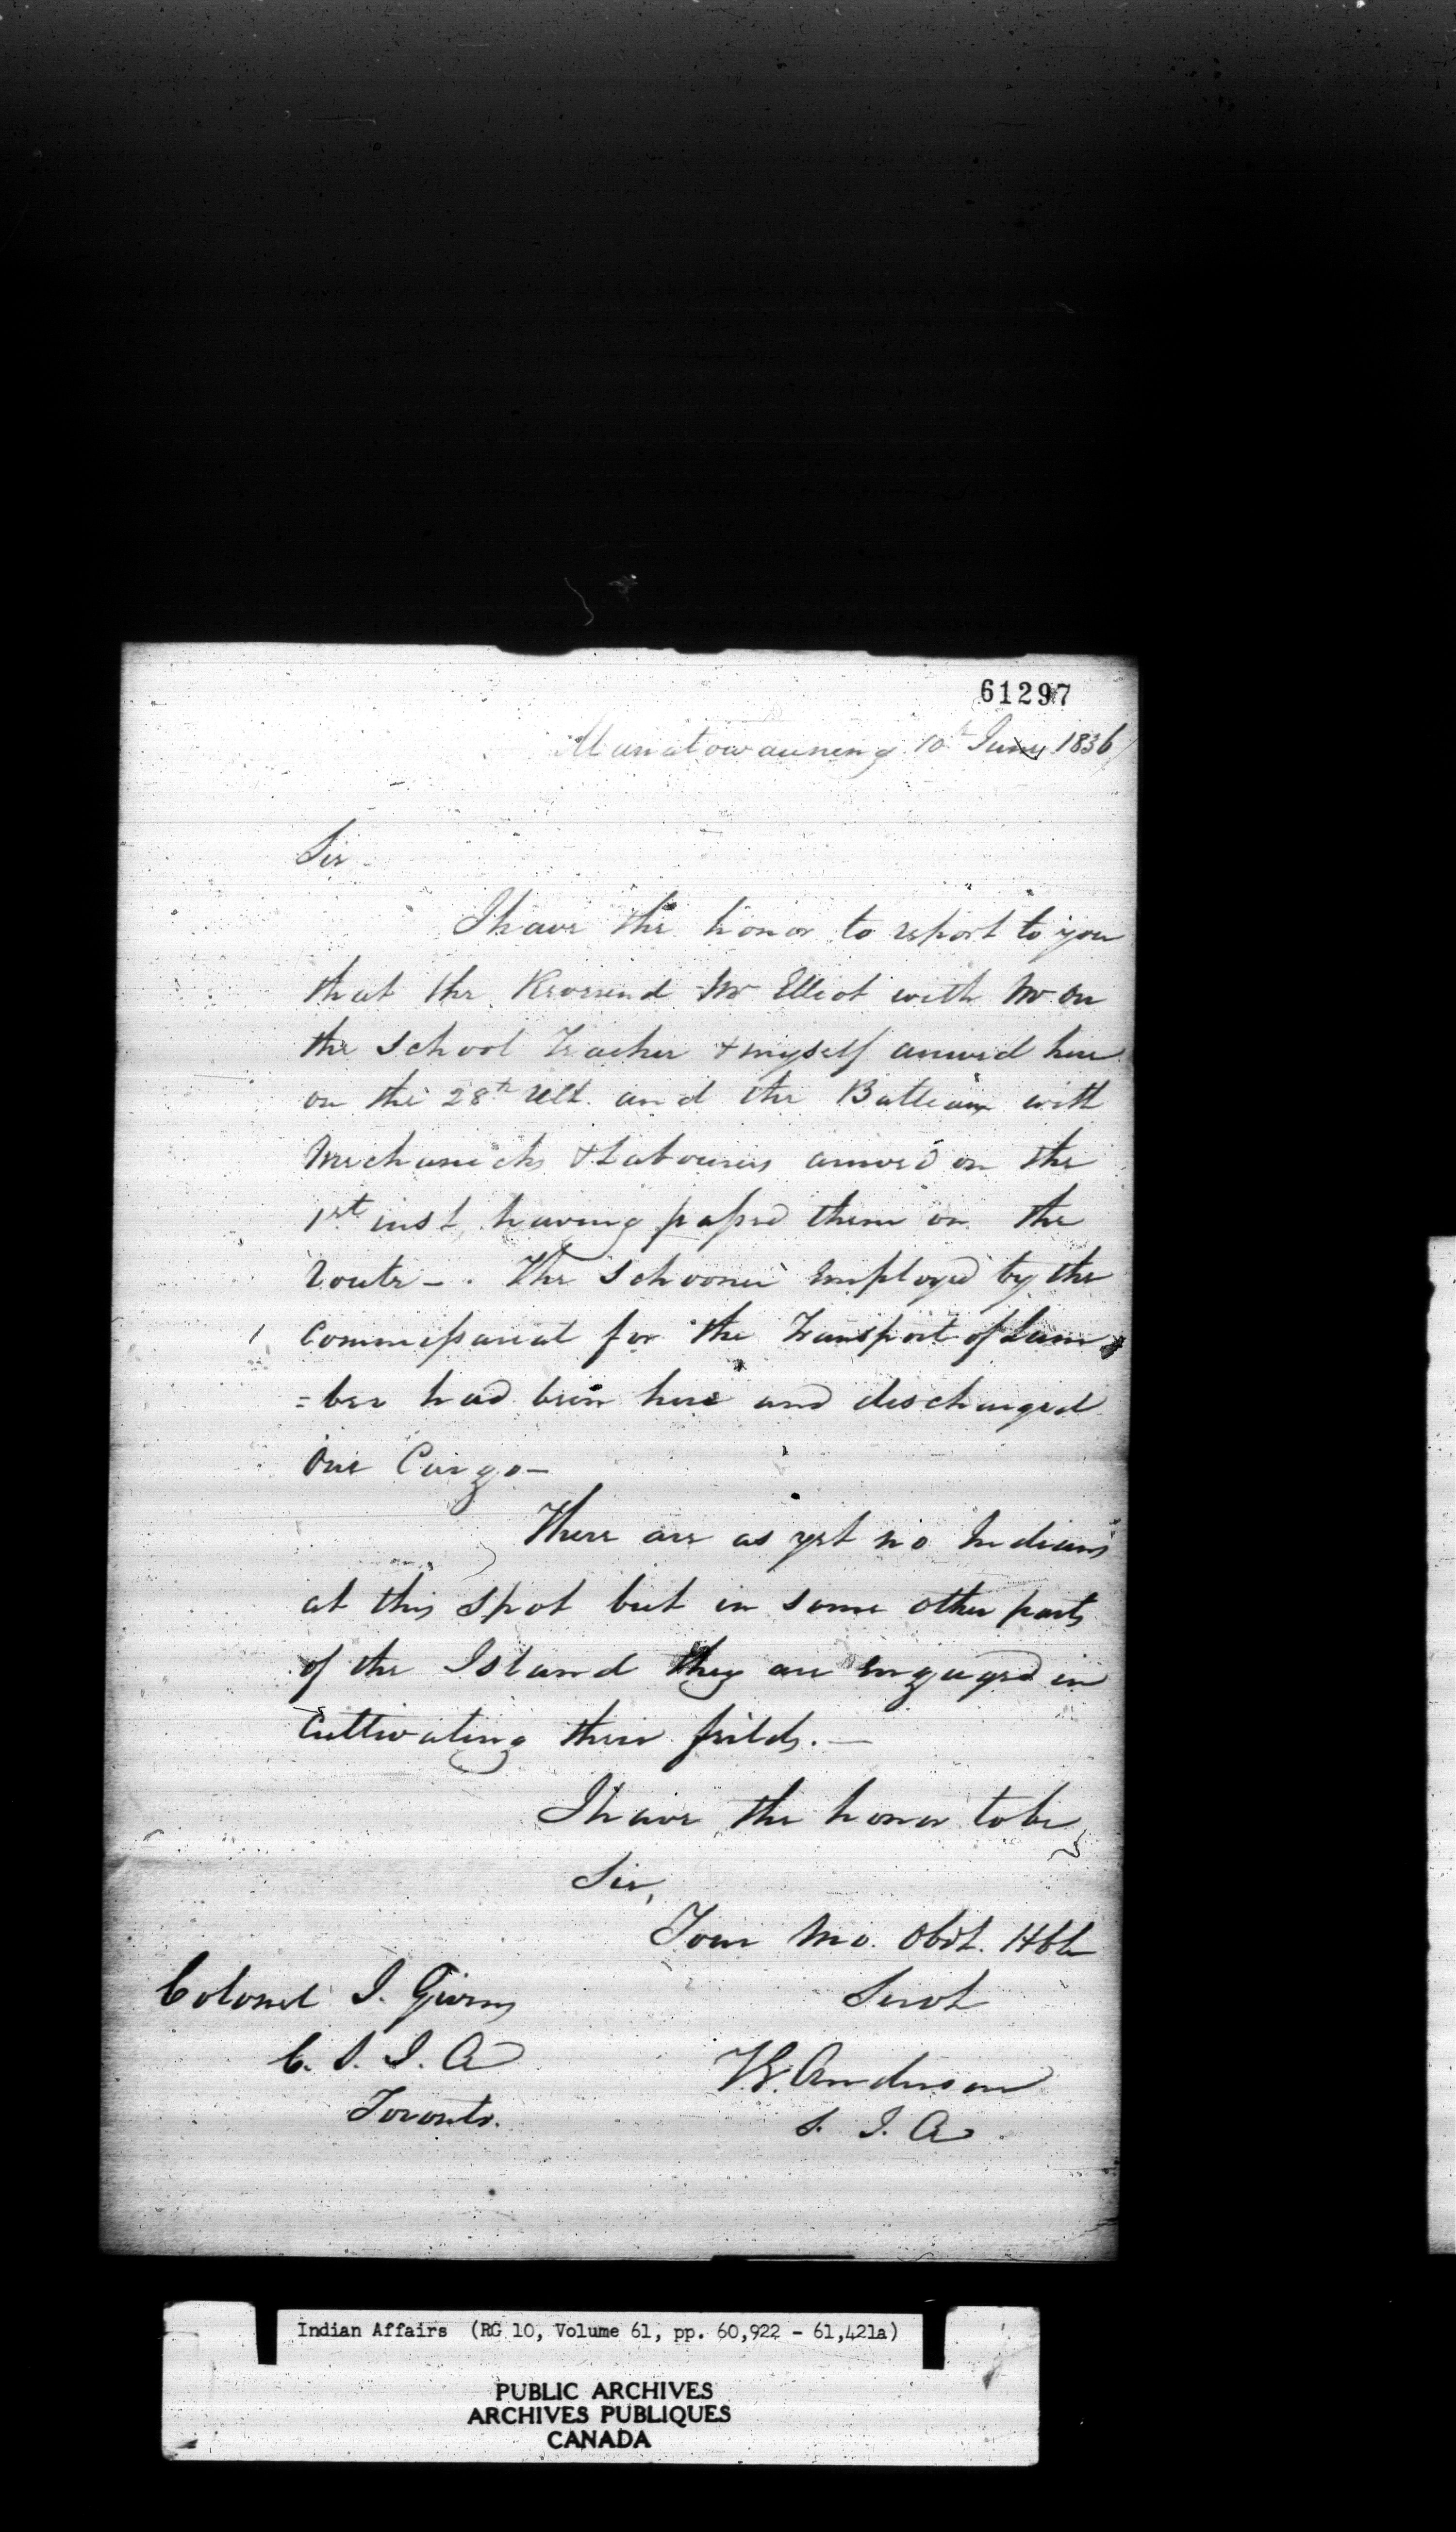 61297
Manatowauning 10th June 1836
Sir
I have the honor to report to you
that the Reverend Mr Elliot with Mr Orr
the School Teacher & myself arrived here
on the 28th Ult. and the Batteaux with
Mechanicks & Labourers arrived on the
1st inst, having passed them on the
Route - . The Schooner employed by the
Commissariat for the Transport of Lum
=ber had been here and discharged
One Cargo -
There are as yet no Indians
at this spot but in some other parts
of the Island they are engaged in
Cultivating their feilds. -
I have the honor to be
Sir,
Your Mo. Obdt. Hble
Servt
Colonel J. Givins
C. S. I. A
Toronto.
T.G. Anderson
S. I. A
Indian Affairs (RG 10, Volume 61, pp. 60,922 - 61,421a)
PUBLIC ARCHIVES
ARCHIVES PUBLIQUES
CANADA